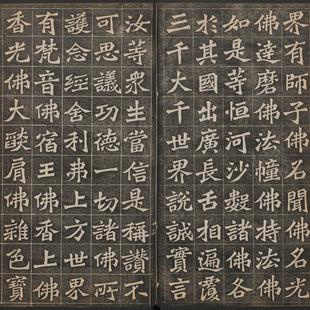 界有師子佛名聞佛名光
佛達磨佛法幢佛持法佛
如是等恒河沙數諸佛各
於其國出廣長舌相遍覆
三千大千世界說誠實言
汝等衆生當信是稱讚不
可思議功德一切諸佛所
護念經舍利弗上方世界
有梵音佛宿王佛香上佛
香光佛大燄肩佛雜色寶